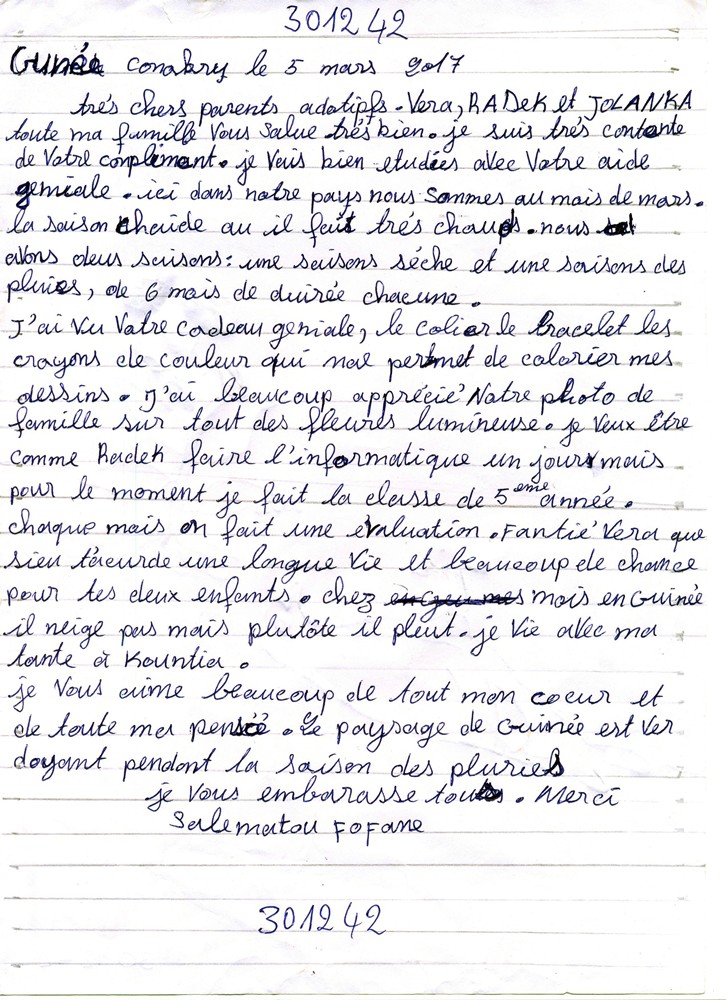 301242
Guinée conakry le 5 mars 2017
trés chers parents adotipfs. Vera, RADEK et JOLANKA
toute ma famille Vous salue trés bien. je suis trés contante
de Votre conplimant. je Vais bien etudiés avec Votre aide
geniale. ici dans notre pays nous sommes au mois de mars.
la saison chaide au il fait trés chaud. nous
avons deus saisons: une saisons séche et une saisons des
pluies, de 6 mois de duirée chacune.
J'ai Vu Votre cadeau geniale, le colier le bracelet les
crayons de couleur qui mae permet de colorier mes
dessins. J'ai beaucoup apprécié Notre photo de
famille sur tout des fleures lumineuse. je Veux être
comme Radek faire l'informatique un jour mais
pour le moment je fait la classe de 5eme année.
chaque mais on fait une évaluation. Fantié Vera que
sieu t'acurde une longue Vie et beaucoup de chance
pour tes deux enfants. chez mois en Guinée
il neige pas mais plutôte il pleut. je Vie avec ma
tante à Kountia.
je Vous aime beaucoup de tout mon coeur et
de toute ma pensée. Le paysage de Guinée est Ver
doyant pendant la saison des pluries
je Vous embarasse tous. Merci
Salematou FOFANE
301242